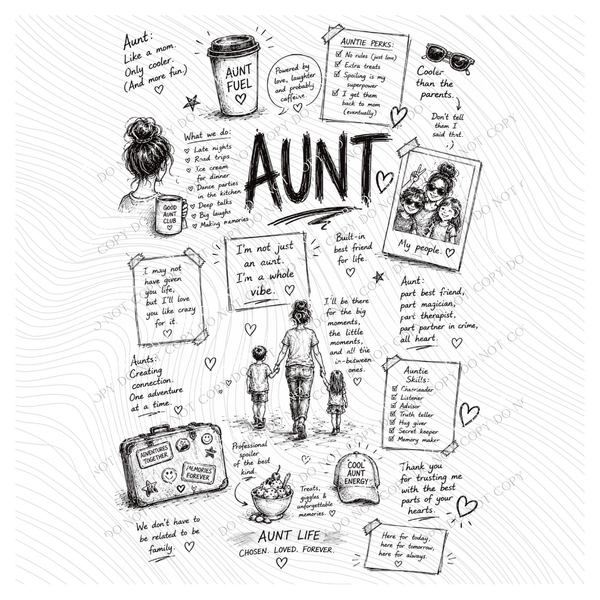 Aunt:
Like a mom.
Only cooler.
(And more fun.)
AUNT
FUEL
Powered by
love, laughter
and probably
caffeine.
AUNTIE PERKS:
No rules (just love)
Extra treats
Spoiling is my
superpower
I get them
back to mom
(eventually)
Cooler
than the
parents.
Don't tell
them I
said that.
:)
What we do:
Late nights
Road trips
Ice cream
for dinner
Dance parties
in the kitchen
Deep talks
Big laughs
Making memories
GOOD
AUNT
CLUB
AUNT
My people.
I may not
have given
you life,
but I'll love
you like crazy
for it.
I'm not just
an aunt.
I'm a whole
vibe.
Built-in
best friend
for life.
Aunt:
part best friend,
part magician,
part therapist,
part partner in crime,
all heart.
I'll be there
for the big
moments,
the little
moments,
and all the
in-between
ones.
Aunts:
Creating
connection.
One adventure
at a time.
Auntie
Skills:
Cheerleader
Listener
Advisor
Truth teller
Hug giver
Secret keeper
Memory maker
ADVENTURES
TOGETHER
MEMORIES
FOREVER
Professional
spoiler
of the best
kind.
COOL
AUNT
ENERGY
Treats,
giggles &
unforgettable
memories.
Thank you
for trusting me
with the best
parts of your
hearts.
We don't have to
be related to be
family.
AUNT LIFE
CHOSEN. LOVED. FOREVER.
Here for today,
here for tomorrow,
here for always.
DO NOT COPY